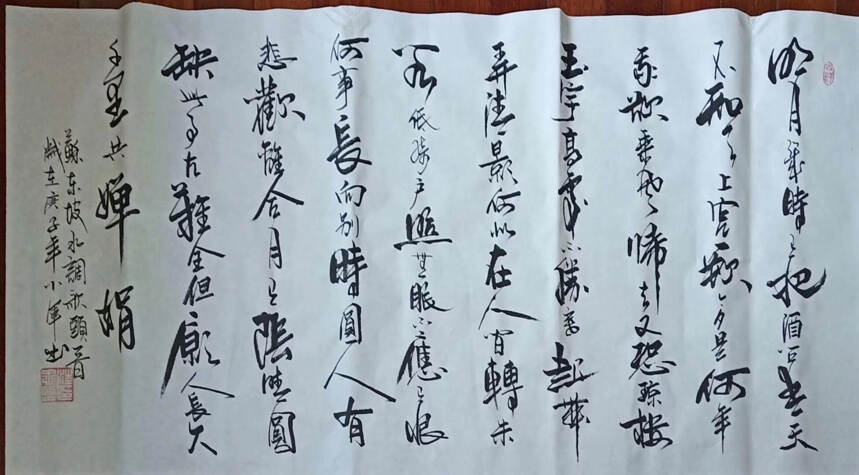 明月幾時有把酒問青天
不知天上宮闕今夕是何年
我欲乘風歸去又恐瓊樓
玉宇高處不勝寒起舞
弄清影何似在人間轉朱
閣低綺戶照無眠不應有恨
何事長向別時圓人有
悲歡離合月有陰晴圓
缺此事古難全但願人長久
千里共嬋娟
蘇東坡水調歌頭首
歲在庚子年小軍書